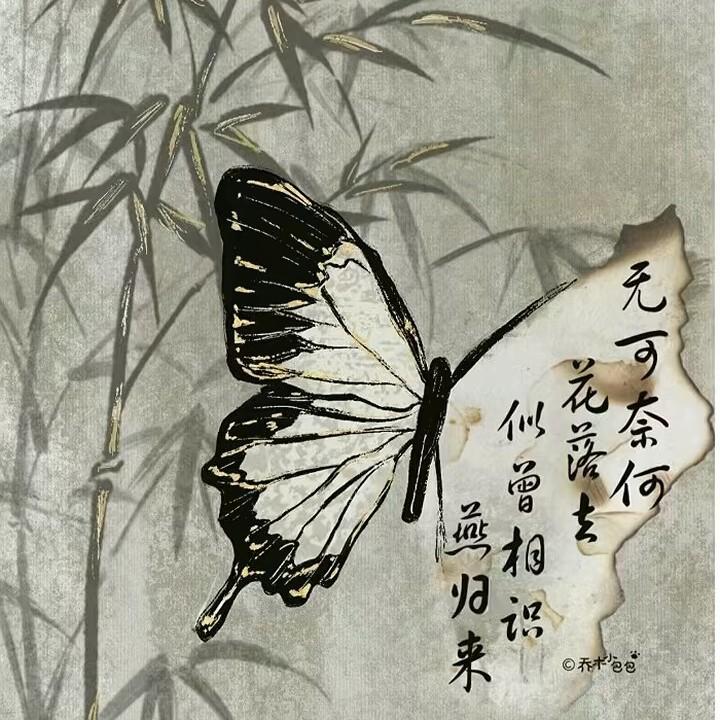 无可奈何
花落去
似曾相识
燕归来
©乔木小包包